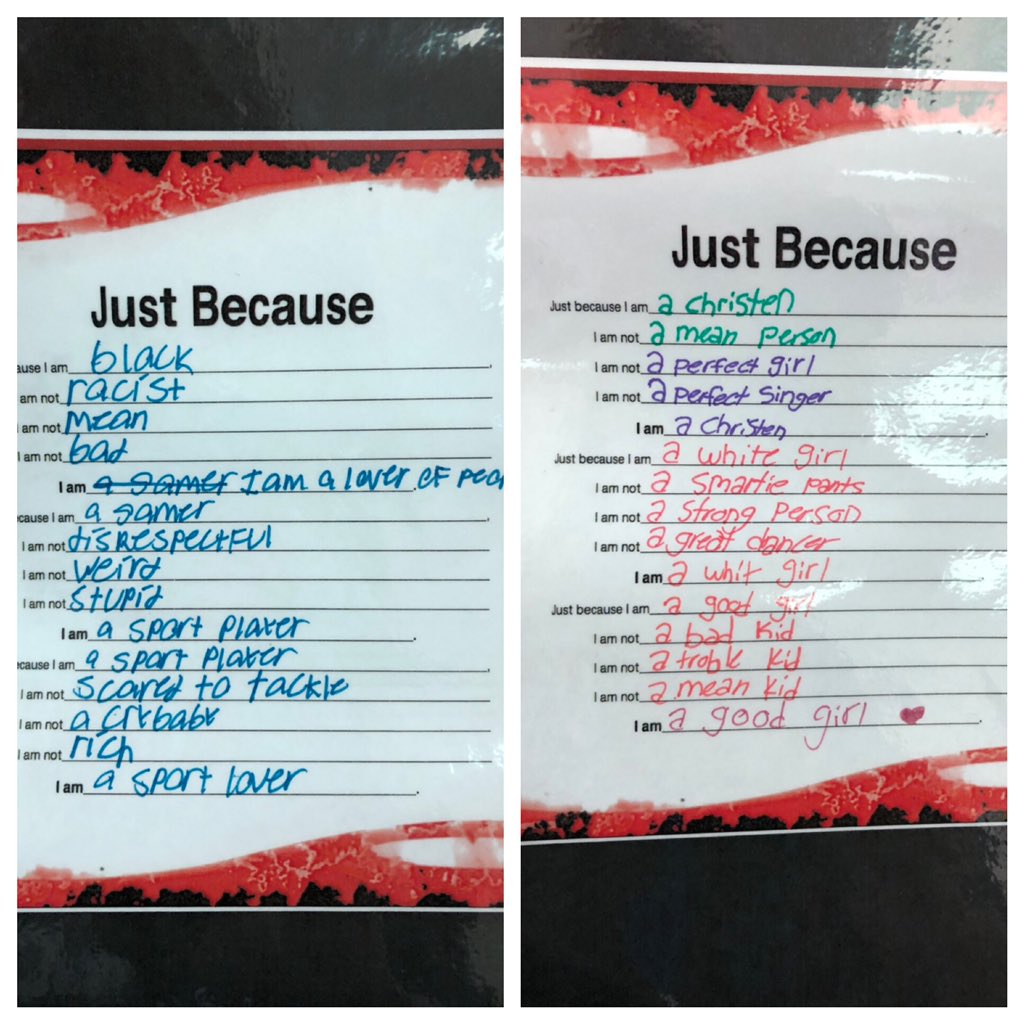 Just Because
ause I am black
am not racist
am not mean
I am not bad
I am a gamer I am a lover of
cause I am a gamer
I am not disrespectful
I am not weird
I am not stupid
I am a sport player
ecause I am a sport player
I am not scared to tackle
I am not a crybaby
I am not rich
I am a sport lover
Just Because
Just because I am a christen
I am not a mean person
I am not a perfect girl
I am not a perfect singer
I am a christen
Just because I am a white girl
I am not a smartie pants
I am not a strong person
I am not a great dancer
I am a whit girl
Just because I am a good girl
I am not a bad kid
I am not a troble kid
I am not a mean kid
I am a good girl